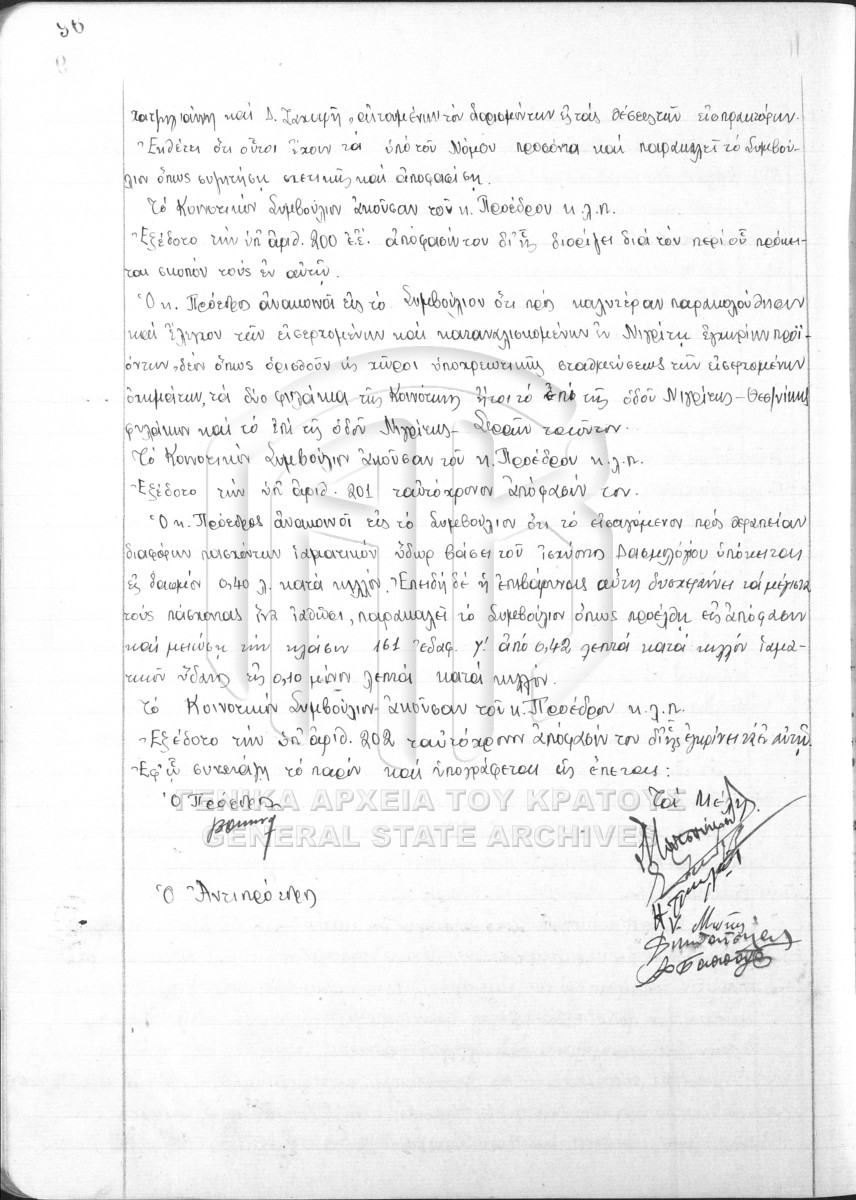 56
καὶ Δ. αἰτουμένων τὸν διορισμόν των εἰς τὰς θέσεις τῶν εἰσπρακτόρων.
Ἐκθέτει ὅτι οὗτοι ἔχουν τὰ ὑπὸ τοῦ Νόμου προσόντα καὶ παρακαλεῖ τὸ Συμβού-
λιον ὅπως συζητήσῃ σχετικῶς καὶ ἀποφασίσῃ.
Τὸ Κοινοτικὸν Συμβούλιον ἀκοῦσαν τοῦ κ. Προέδρου κ.λ.π.
Ἐξέδοτο τὴν ὑπ' ἀριθ. 200 ἀπόφασίν του δι' ἧς διορίζει διὰ τὸν περὶ οὗ πρόκει-
ται σκοπὸν τοὺς ἐν αὐτῇ.
Ὁ κ. Πρόεδρος ἀνακοινοῖ εἰς τὸ Συμβούλιον ὅτι πρὸς καλυτέραν παρακολούθησιν
καὶ ἔλεγχον τῶν εἰσερχομένων καὶ καταναλισκομένων ἐν Νιγρίτῃ ἐγχωρίων προϊ-
όντων, δέον ὅπως ὁρισθοῦν ὡς χῶροι ὑποχρεωτικῆς σταθμεύσεως τῶν εἰσερχομένων
ὀχημάτων, τὰ δύο φυλάκια τῆς Κοινότητος ἤτοι τὸ ἐπὶ τῆς ὁδοῦ Νιγρίτης - Θεσ/νίκης
φυλάκιον καὶ τὸ ἐπὶ τῆς ὁδοῦ Νιγρίτης - Σερρῶν τοιοῦτον.
Τὸ Κοινοτικὸν Συμβούλιον ἀκοῦσαν τοῦ κ. Προέδρου κ.λ.π.
Ἐξέδοτο τὴν ὑπ' ἀριθ. 201 ταὐτόχρονον ἀπόφασίν του.
Ὁ κ. Πρόεδρος ἀνακοινοῖ εἰς τὸ Συμβούλιον ὅτι τὸ εἰσαγόμενον πρὸς θεραπείαν
διαφόρων πασχόντων ἰαματικὸν ὕδωρ βάσει τοῦ ἰσχύοντος Δασμολογίου ὑπόκειται
εἰς δασμὸν 0,40 λ. κατὰ κιλλόν. Ἐπειδὴ δὲ ἡ ἐπιβάρυνσις αὕτη δυσχεραίνει τὰ μέγιστα
τοὺς πάσχοντας ἵνα ἰαθῶσι, παρακαλεῖ τὸ Συμβούλιον ὅπως προέλθῃ εἰς ἀπόφασιν
καὶ μειώσῃ τὴν κλάσιν 161 ἐδαφ. γ! ἀπὸ 0,42 λεπτὰ κατὰ κιλλὸν ἰαμα-
τικοῦ ὕδατος εἰς 0,10 μόνον λεπτὰ κατὰ κιλλόν.
Τὸ Κοινοτικὸν Συμβούλιον ἀκοῦσαν τοῦ κ. Προέδρου κ.λ.π.
Ἐξέδοτο τὴν ὑπ' ἀριθ. 202 ταὐτόχρονον ἀπόφασίν του δι' ἧς ἐγκρίνει τὰ ἐν αὐτῇ.
Ἐφ' ᾧ συνετάγη τὸ παρὸν καὶ ὑπογράφεται ὡς ἕπεται:
Ὁ Πρόεδρος
Τὰ Μέλη
Ὁ Ἀντιπρόεδρος
ΓΕΝΙΚΑ ΑΡΧΕΙΑ ΤΟΥ ΚΡΑΤΟΥΣ
GENERAL STATE ARCHIVES